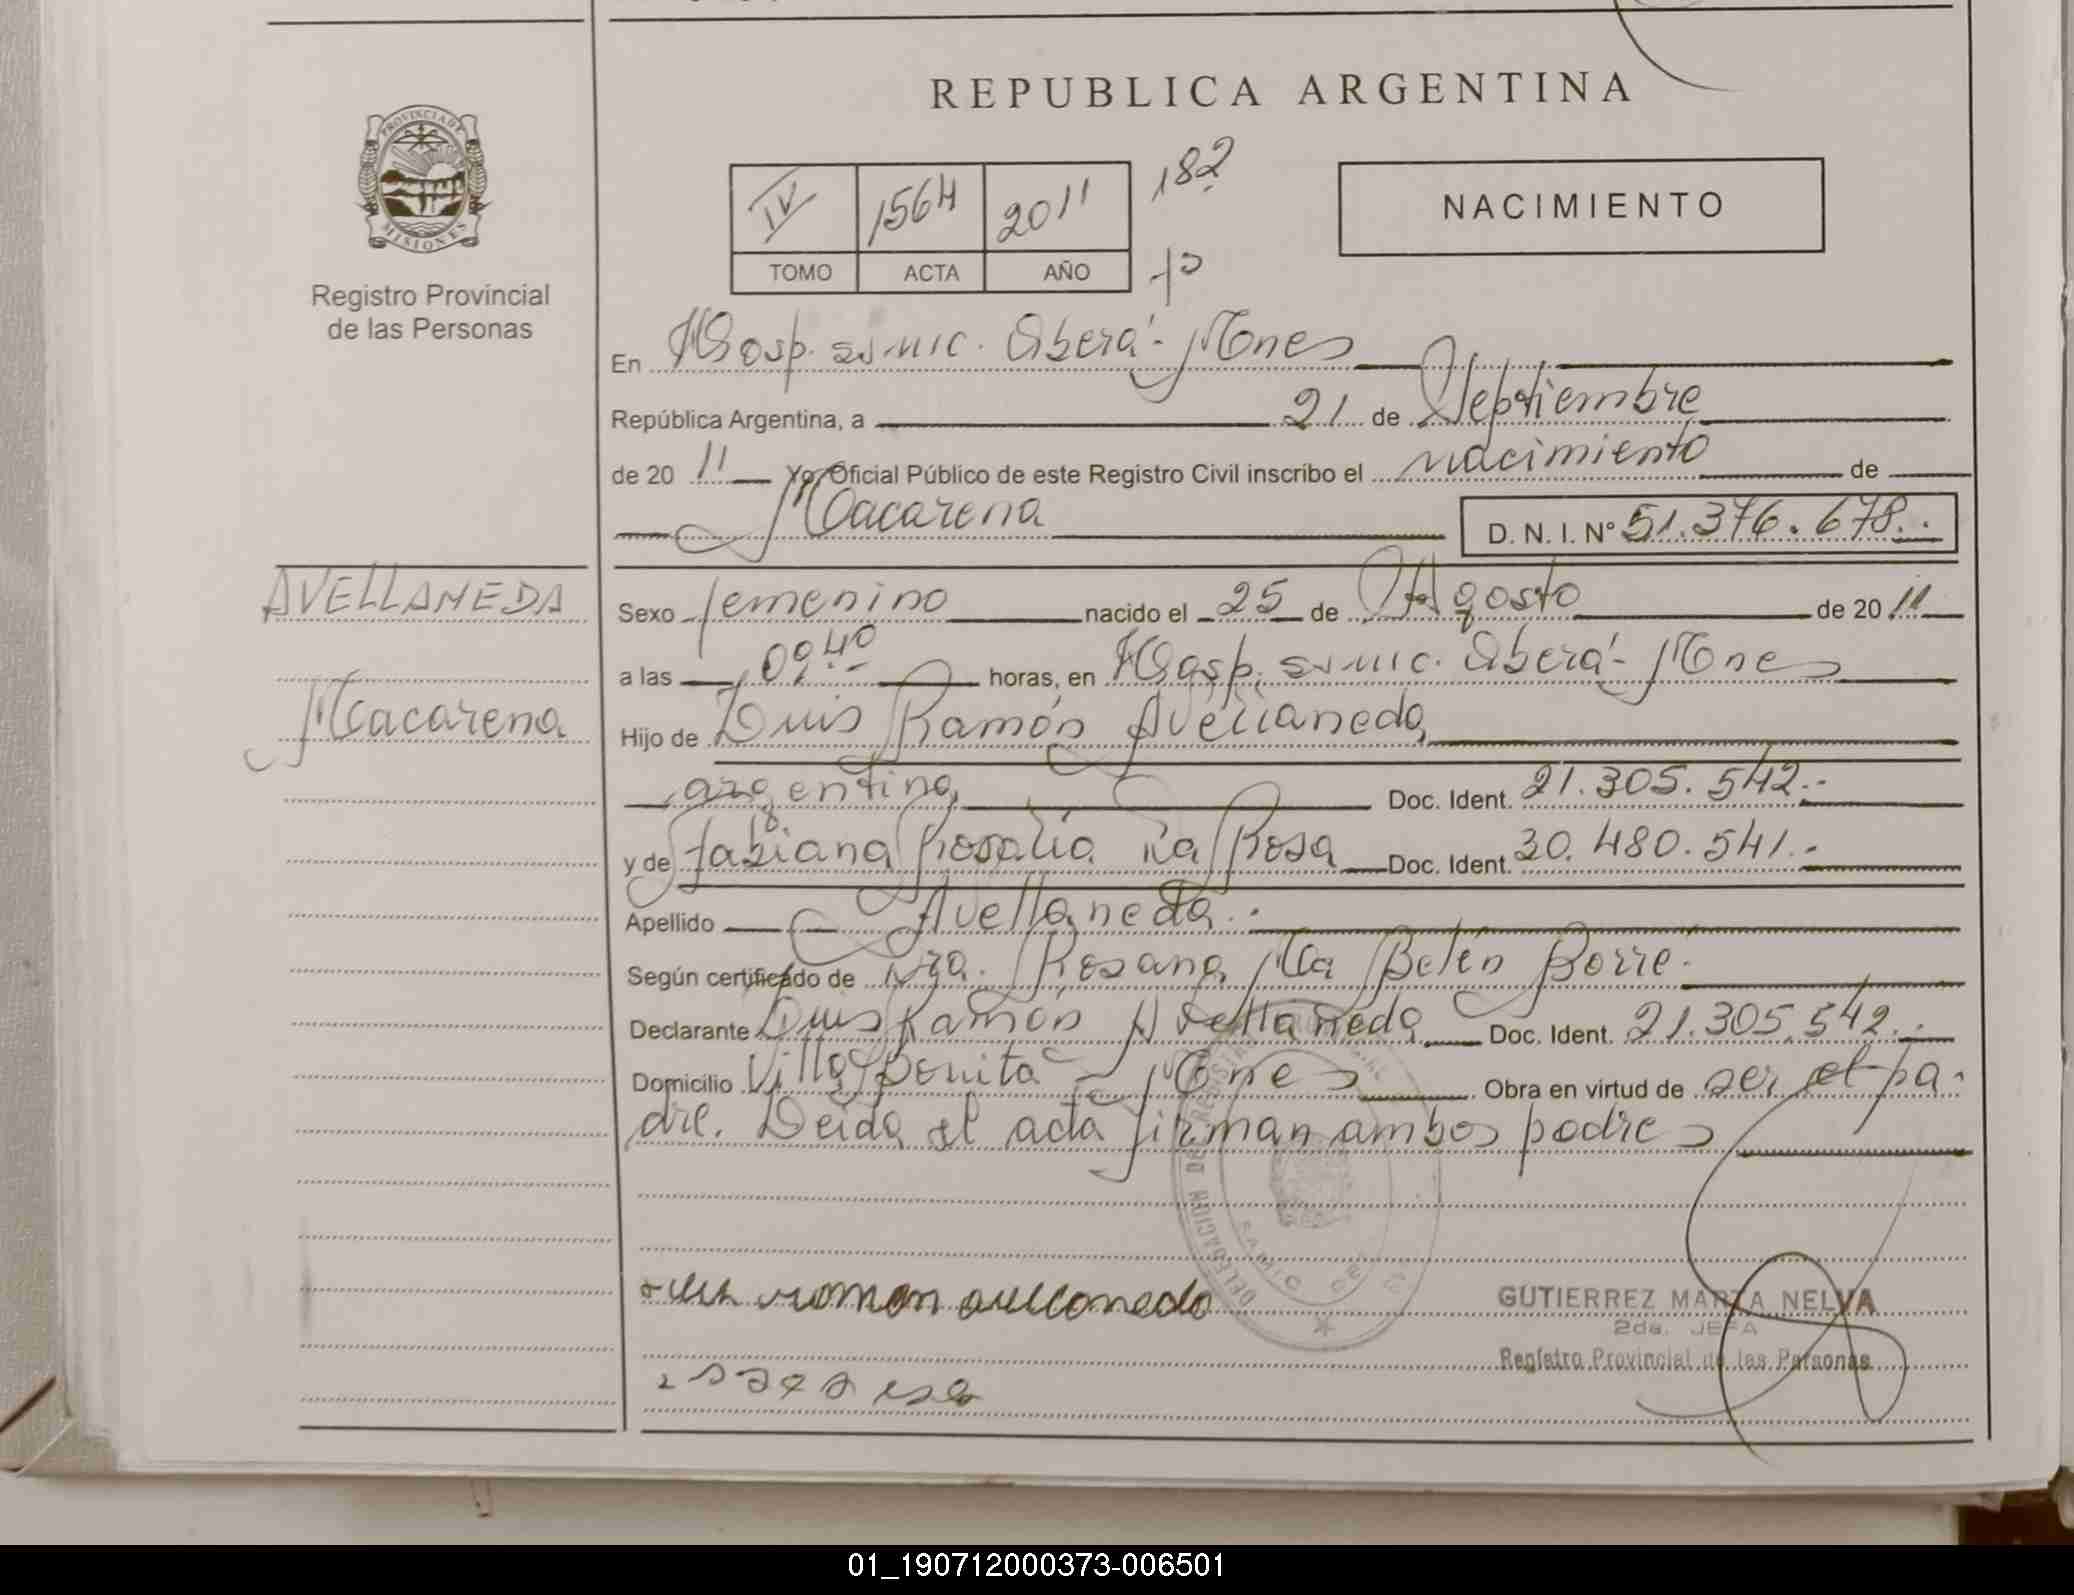 REPUBLICA ARGENTINA
PROVINCIA DE
MISIONES
Registro Provincial
de las Personas
IV 1564 2011 182
TOMO ACTA AÑO fº
NACIMIENTO
En Hosp. Oberá - Mnes
República Argentina, a 21 de Septiembre
de 20 11 Yo, Oficial Público de este Registro Civil inscribo el nacimiento de
Macarena D. N. I. Nº 51.376.678.-
AVELLANEDA
Macarena
Sexo femenino nacido el 25 de Agosto de 20 11
a las horas, en Hosp. Oberá - Mnes
Hijo de Luis Ramón Avellaneda
argentina Doc. Ident. 21.305.542.-
y de Fabiana Rosalía La Rosa Doc. Ident. 30.480.541.-
Apellido Avellaneda.-
Según certificado de Dra. Rosana Ma Belén Borré.
Declarante Luis Ramón Avellaneda Doc. Ident. 21.305.542.-
Domicilio Villa Bonita - Mnes Obra en virtud de ser el pa-
dre. Leida el acta firman ambos padres
DELEGACION DE
GUTIERREZ MARTA NELVA
2da. JEFA
Registro Provincial de las Personas
01_190712000373-006501